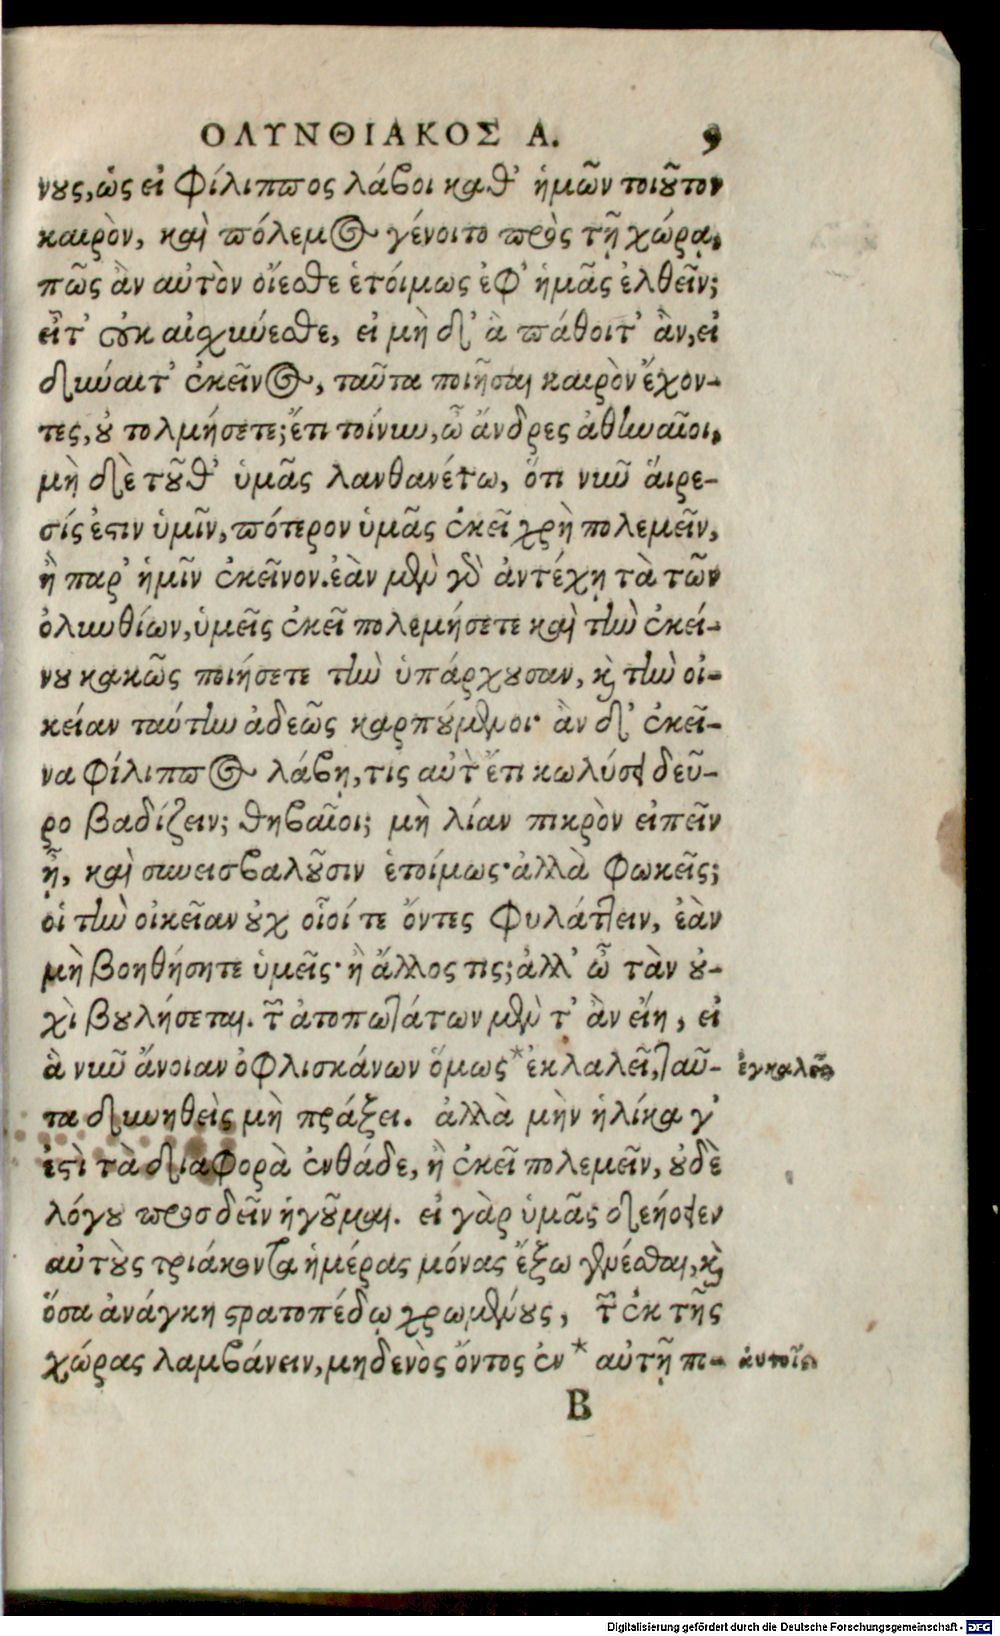 ΟΛΥΝΘΙΑΚΟΣ Α. 9
νους, ὡς εἰ Φίλιππος λάβοι καθ' ἡμῶν τοιοῦτον
καιρὸν, καὶ πόλεμος γένοιτο πρὸς τῇ χώρᾳ,
πῶς ἂν αὐτὸν οἴεσθε ἑτοίμως ἐφ' ἡμᾶς ἐλθεῖν;
εἶτ' οὐκ αἰσχύνεσθε, εἰ μὴ δ' ἃ πάθοιτ' ἂν, εἰ
δύναιτ' ἐκεῖνος, ταῦτα ποιῆσαι καιρὸν ἔχον-
τες, οὐ τολμήσετε; ἔτι τοίνυν, ὦ ἄνδρες ἀθηναῖοι,
μὴ δὲ τοῦθ' ὑμᾶς λανθανέτω, ὅτι νῦν αἵρε-
σίς ἐστιν ὑμῖν, πότερον ὑμᾶς ἐκεῖ χρὴ πολεμεῖν,
ἢ παρ' ἡμῖν ἐκεῖνον. ἐὰν μὲν γὰρ ἀντέχῃ τὰ τῶν
ὀλυνθίων, ὑμεῖς ἐκεῖ πολεμήσετε καὶ τὴν ἐκεί-
νου κακῶς ποιήσετε τὴν ὑπάρχουσαν, καὶ τὴν οἰ-
κείαν ταύτην ἀδεῶς καρπούμενοι· ἂν δ' ἐκεῖ-
να Φίλιππος λάβῃ, τίς αὐτὸν ἔτι κωλύσει δεῦ-
ρο βαδίζειν; θηβαῖοι; μὴ λίαν πικρὸν εἰπεῖν
ᾖ, καὶ συνεισβαλοῦσιν ἑτοίμως· ἀλλὰ Φωκεῖς;
οἱ τὴν οἰκεῖαν οὐχ οἷοί τε ὄντες φυλάττειν, ἐὰν
μὴ βοηθήσητε ὑμεῖς· ἢ ἄλλος τις; ἀλλ' ὦ τὰν οὐ-
χὶ βουλήσεται. τῶν ἀτοπωτάτων μὲν τ' ἂν εἴη, εἰ
ἃ νῦν ἄνοιαν ὀφλισκάνων ὅμως *ἐκλαλεῖ, ταῦ-
τα δυνηθεὶς μὴ πράξει. ἀλλὰ μὴν ἡλίκα γ'
ἐστὶ τὰ διαφορὰ ἐνθάδε, ἢ ἐκεῖ πολεμεῖν, οὐδὲ
λόγου προσδεῖν ἡγοῦμαι. εἰ γὰρ ὑμᾶς δεήσειεν
αὐτοὺς τριάκοντα ἡμέρας μόνας ἔξω γενέσθαι, καὶ
ὅσα ἀνάγκη στρατοπέδῳ χρωμένους, τῶν ἐκ τῆς
χώρας λαμβάνειν, μηδενὸς ὄντος ἐν * αὐτῇ πο-
Β
αὐτοῖς
Digitalisierung gefördert durch die Deutsche Forschungsgemeinschaft - DFG